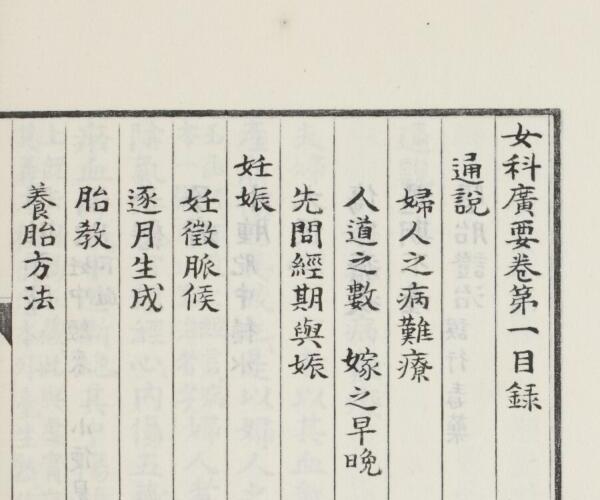 女科廣要卷第一目録
通說
婦人之病難療
人道之數 嫁之早晚
先問經期與娠
妊娠
妊徵脈候
逐月生成
胎教
養胎方法